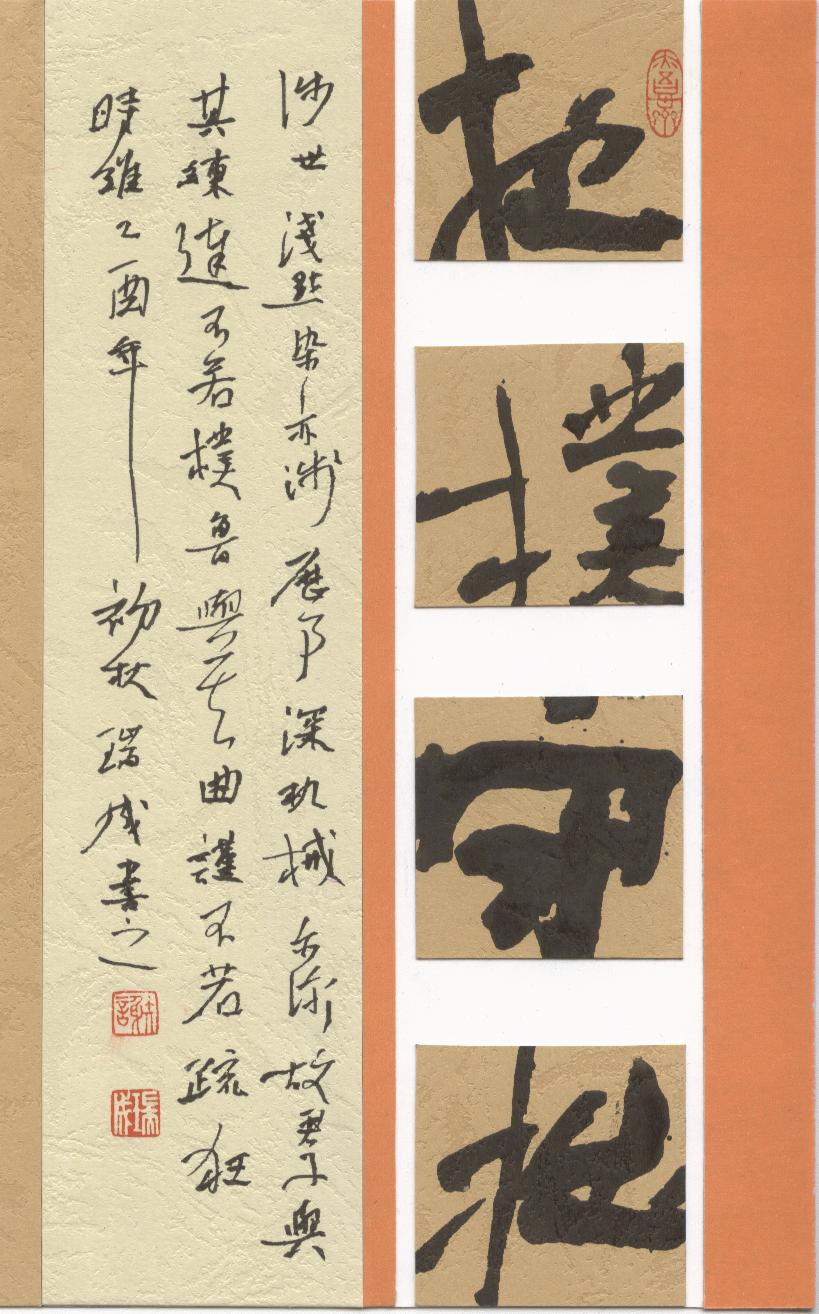 抱
樸
守
拙
涉世淺點染亦淺歷事深机械亦深故君子與
其練達不若樸魯與其曲謹不若疏狂
時維乙酉年初秋瑞成書之
謝
瑞成